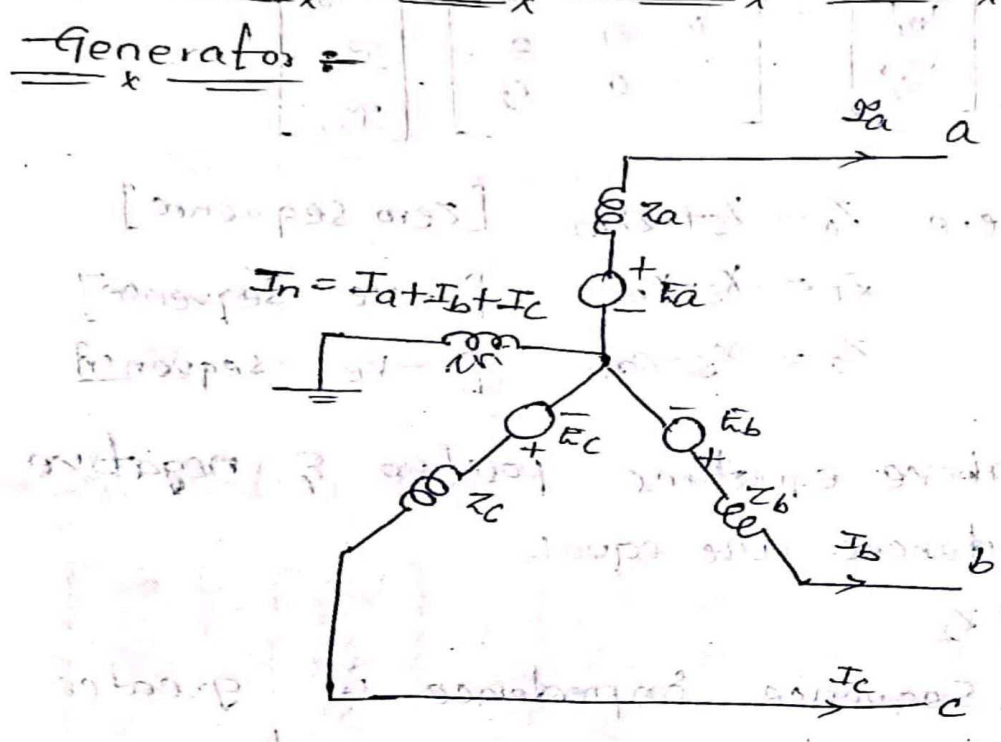 Generator :-
Ia a
Za
+
Ea
-
In = Ia+Ib+Ic
Zn
- Eb
+
Ec
+
Zb
Zc
Ib b
Ic c